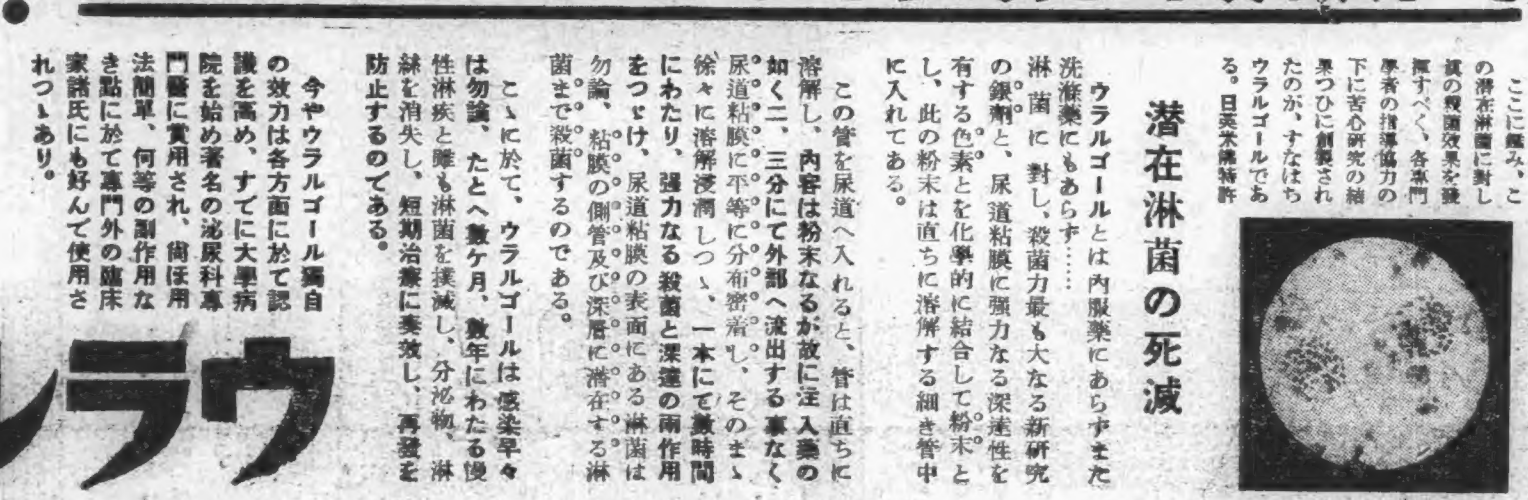 ここに鑑み、こ
の潜在淋菌に對し
眞の殺菌效果を發
揮すべく、各專門
學者の指導協力の
下に苦心研究の結
果つひに創製され
たのが、すなはち
ウラルゴールであ
る。日英米佛特許
潜在淋菌の死滅
ウラルゴールとは內服藥にあらずまた
洗滌藥にもあらず……
淋菌に對し、殺菌力最も大なる新硏究
の銀劑と、尿道粘膜に强力なる深達性を
有する色素とを化學的に結合して粉末と
し、此の粉末は直ちに溶解する細き管中
に入れてある。
この管を尿道へ入れると、管は直ちに
溶解し、內容は粉末なるが故に注入藥の
如く二、三分にて外部へ流出する事なく
尿道粘膜に平等に分布密着し、そのまゝ
徐々に溶解浸潤しつゝ、一本にて數時間
にわたり、强力なる殺菌と深達の兩作用
をつゞけ、尿道粘膜の表面にある淋菌は
勿論、粘膜の側管及び深層に潜在する淋
菌まで殺菌するのである。
こゝに於て、ウラルゴールは感染早々
は勿論、たとへ數ケ月、數年にわたる慢
性淋疾と雖も淋菌を撲滅し、分泌物、淋
絲を消失し、短期治療に奏效し、再發を
防止するのである。
今やウラルゴール獨自
の效力は各方面に於て認
識を高め、すでに大學病
院を始め著名の泌尿科專
門醫に賞用され、尙ほ用
法簡單、何等の副作用な
き點に於て專門外の臨床
家諸氏にも好んで使用さ
れつゝあり。
ウラ